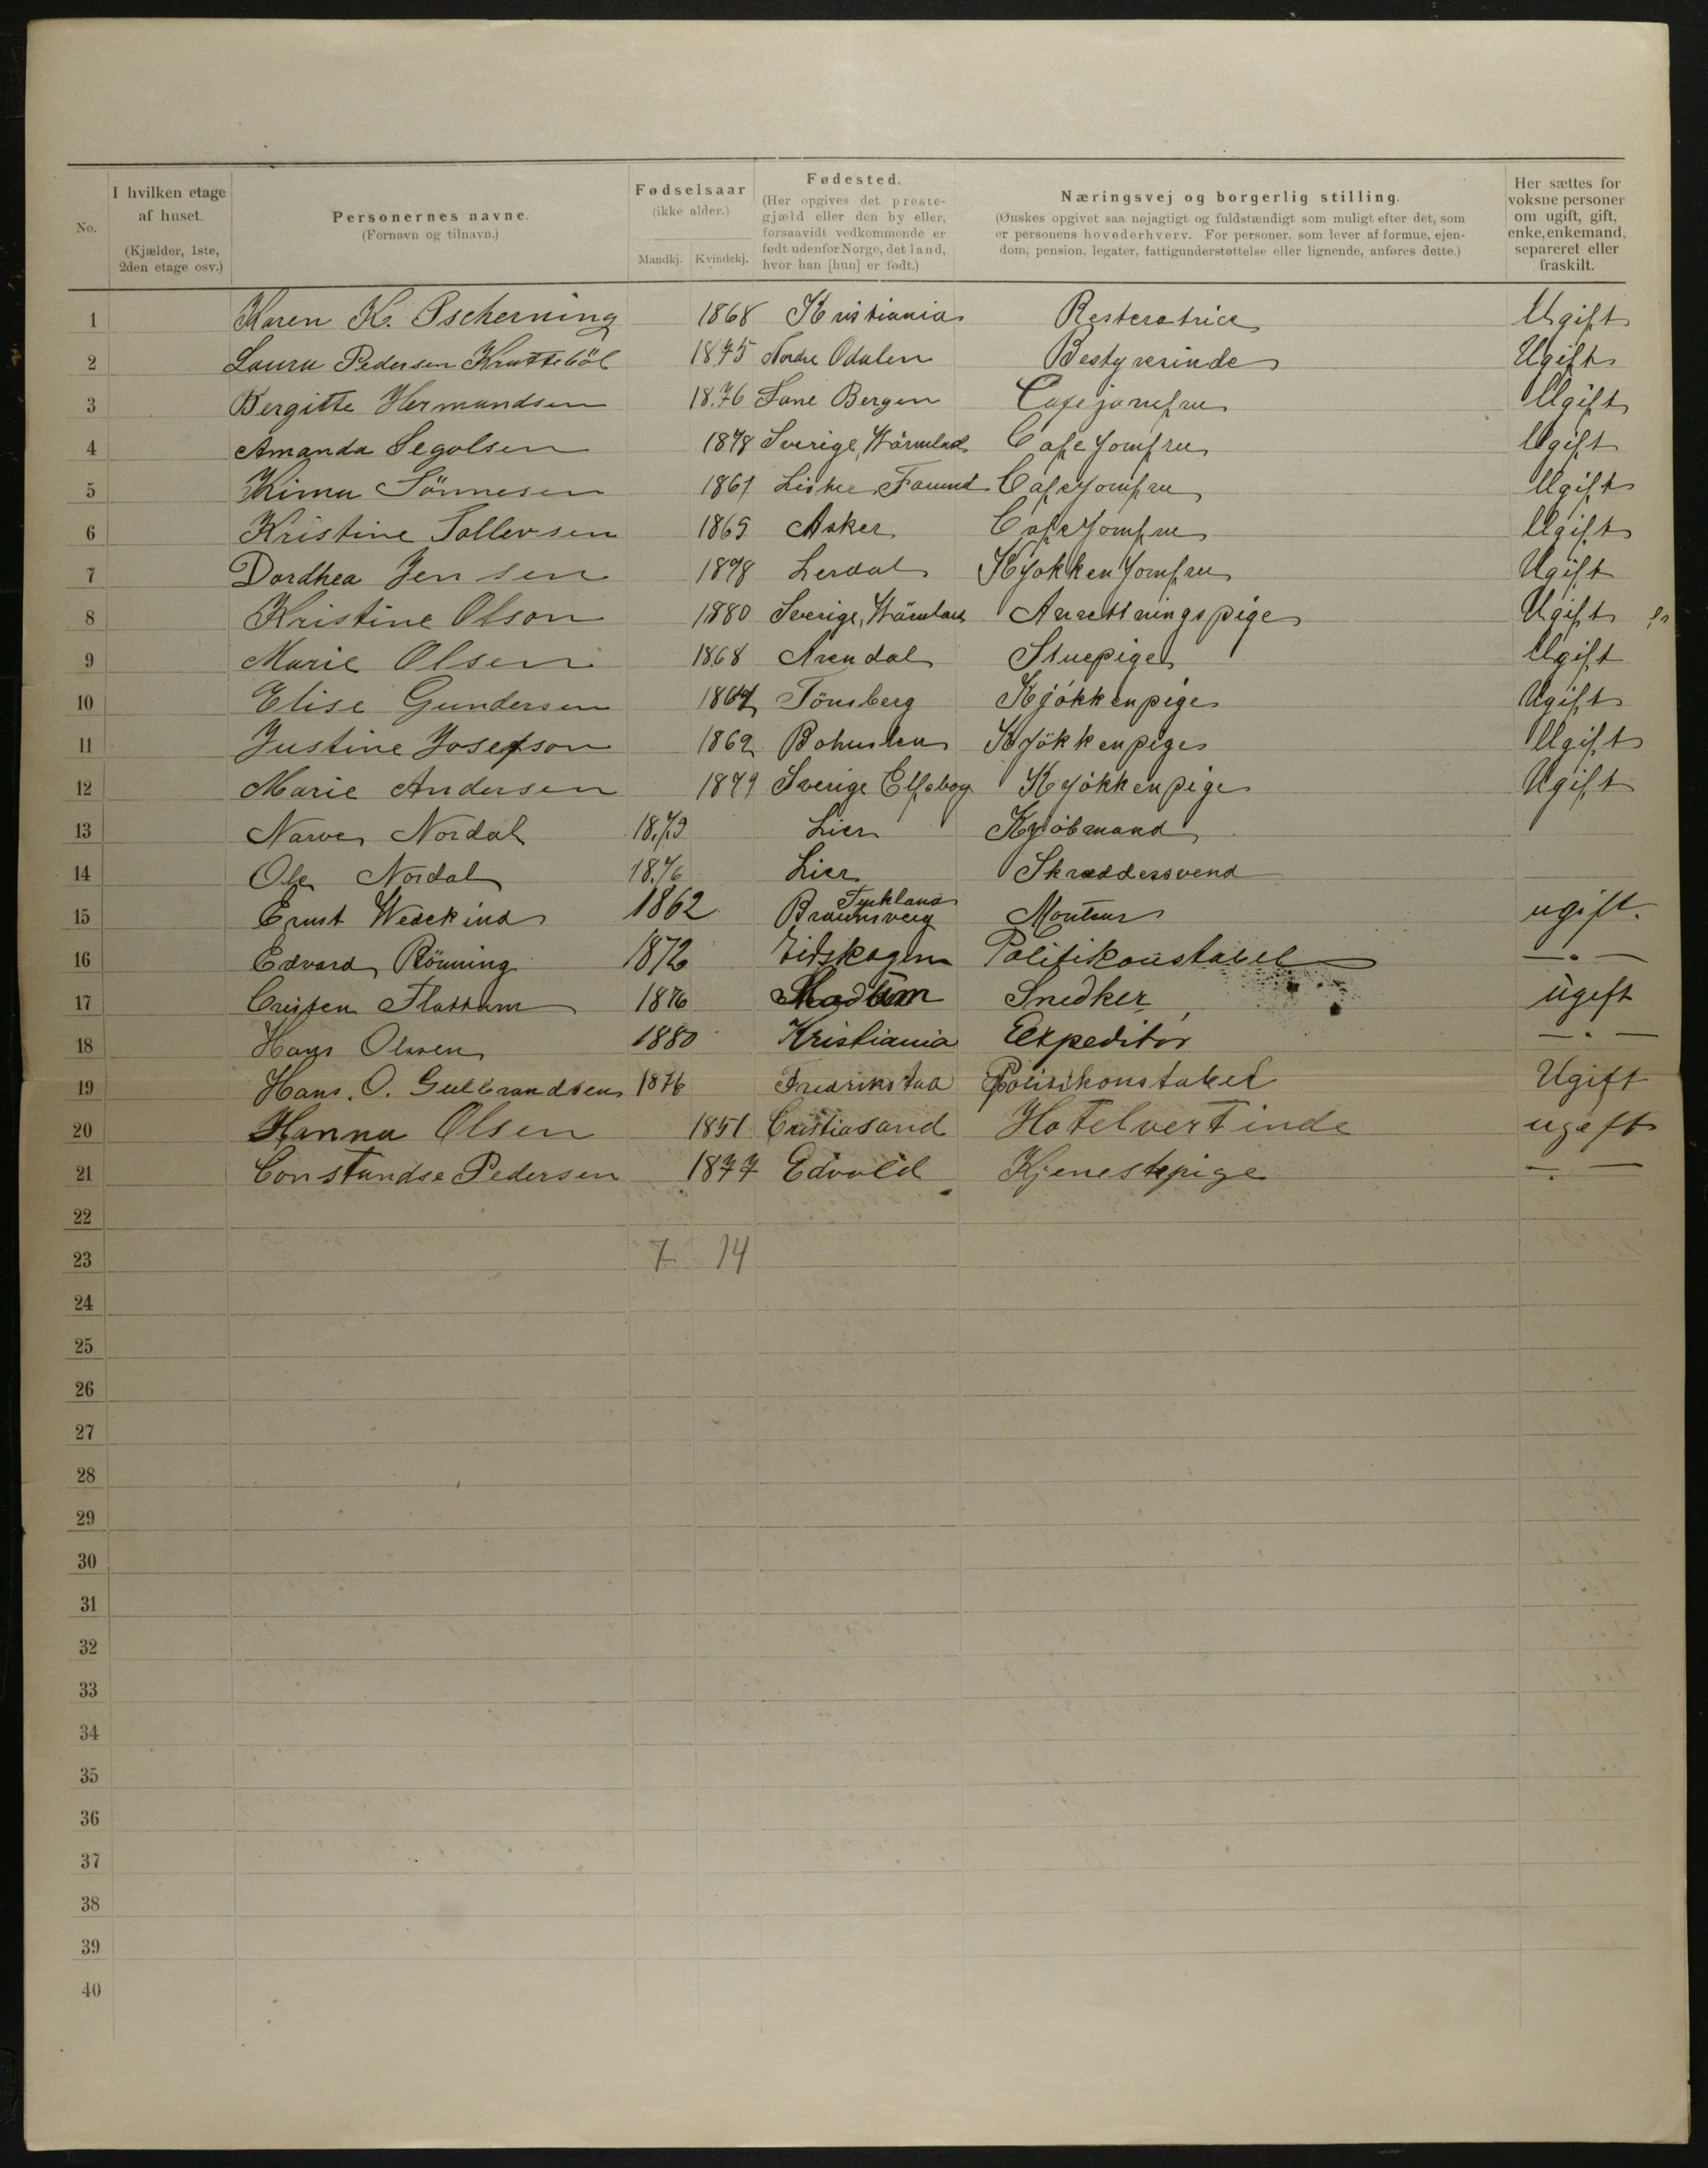 No.
I hvilken etage af huset.
(Kjælder, 1ste, 2den etage osv.)
Personernes navne.
(Fornavn og tilnavn.)
Fødselsaar
(ikke alder.)
Mandkj. Kvindekj.
Fødested.
(Her opgives det prestegjæld eller den by eller, forsaavidt vedkommende er født udenfor Norge, det land, hvor han [hun] er født.)
Næringsvej og borgerlig stilling.
(Ønskes opgivet saa nøjagtigt og fuldstændigt som muligt efter det, som er personens hovederhverv. For personer, som lever af formue, ejendom, pension, legater, fattigunderstøttelse eller lignende, anføres dette.)
Her sættes for voksne personer om ugift, gift, enke, enkemand, separeret eller fraskilt.
1 Karen K. Tscherning 1868 Kristiania Resteratrice Ugift
2 Laura Pedersen 1875 Nordre Odalen Bestyrerinde Ugift
3 Bergitte Hermandsen 18.76 Fane Bergen Cafejomfru Ugift
4 Amanda Segolsen 1878 Sverige, Wärmland Cafejomfru Ugift
5 Sönnesen 1861 Lister Cafejomfru Ugift
6 Kristine Tollevsen 1869 Asker Cafejomfru Ugift
7 Dordhea Jensen 1878 Lerdal Kjökkenjomfru Ugift
8 Kristine Olson 1880 Sverige, Wärmland Anretningspige Ugift
9 Marie Olsen 1868 Arendal Stuepige Ugift
10 Elise Gundersen Tönsberg Kjökkenpige Ugift
11 Justine Josefson 1862 Bohuslen Kjökkenpige Ugift
12 Marie Andersen 1879 Sverige Elfsborg Kjökkenpige Ugift
13 Narve Nordal 18.73 Lier Kjöbmand
14 Ole Nordal 18.76 Lier Skræddersvend
15 Ernst Wedekind 1862 Tyskland Braunsveig Monteur ugift.
16 Edvard Rönning 1872 Eidskogen Politikonstabel — " —
17 Cristen Flattum 1876 Modum Snedker ugift
18 Hans Olssen 1880 Kristiania Expeditör — " —
19 Hans. O. Gulbrandsen 1876 Fredrikstad Politikonstabel Ugift
20 Hanna Olsen 1851 Cristiasand Hotelvertinde ugift
21 Constandse Pedersen 1877 Edvold Tjenestepige — " —
22
23 7 14
24
25
26
27
28
29
30
31
32
33
34
35
36
37
38
39
40